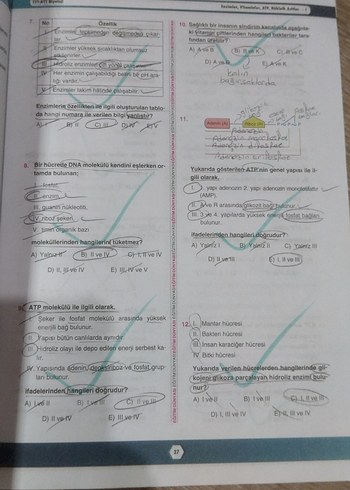 Enzimler, Vitaminler, ATP, Nükleik Asitler
7. No Özellik
I. Enzimler, tepkimeden değişmeden çıkar-
lar.
II. Enzimler yüksek sıcaklıktan olumsuz
etkilenirler.
III. Hidroliz enzimleri
IV. Her enzimin çalışabildiği belirli bir pH ara-
lığı vardır.
V. Enzimler takım hâlinde çalışabilir.
Enzimlerin özellikleri ile ilgili oluşturulan tablo-
da hangi numara ile verilen bilgi yanlıştır?
A) I B) II C) III D) IV E) V
8. Bir hücrede DNA molekülü kendini eşlerken or-
tamda bulunan;
III. guanin nükleotit,
IV. riboz şeker,
V. timin organik bazı
moleküllerinden hangilerini tüketmez?
A) Yalnız II B) II ve IV C) I, II ve IV
D) II, III ve IV E) III, IV ve V
9. ATP molekülü ile ilgili olarak,
I. Şeker ile fosfat molekülü arasında yüksek
enerjili bağ bulunur.
II. Yapısı bütün canlılarda aynıdır.
III. Hidroliz olayı ile depo edilen enerji serbest ka-
lır.
IV. Yapısında adenin, deoksiriboz ve fosfat grup-
ları bulunur.
ifadelerinden hangileri doğrudur?
A) I ve II B) I ve III C) II ve III
D) II ve IV E) III ve IV
10. Sağlıklı bir insanın sindirim kanalında aşağıda-
ki vitamin çiftlerinden hangileri bakteriler tara-
fından üretilir?
A) A ve B B) B ve K C) B ve C
D) A ve D E) A ve K
Kalın
bağırsaklarda
11.
Adenin (A)
Adenozin
Yukarıda gösterilen ATP'nin genel yapısı ile il-
gili olarak,
I. 1. yapı adenozin 2. yapı adenozin monofosfattır
(AMP).
II. A ve R arasında glikozit bağı bulunur.
III. 3 ve 4. yapılarda yüksek enerjili fosfat bağları
bulunur.
ifadelerinden hangileri doğrudur?
A) Yalnız I B) Yalnız II C) Yalnız III
D) II ve III E) I, II ve III
12. I. Mantar hücresi
II. Bakteri hücresi
III. İnsan karaciğer hücresi
IV. Bitki hücresi
Yukarıda verilen hücrelerden hangilerinde gli-
kojeni glikoza parçalayan hidroliz enzimi bulu-
nur?
A) I ve II B) I ve III C) I, II ve III
D) I, III ve IV E) II, III ve IV
17